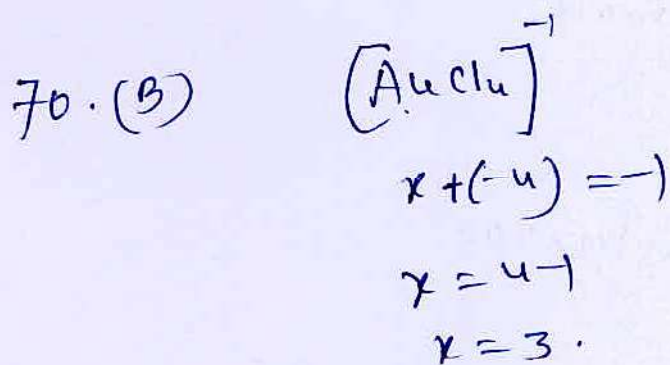 70. (B) [AuCl4]^-1
x + (-4) = -1
x = 4-1
x = 3.